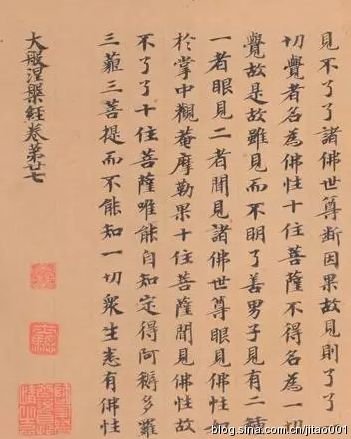 見不了了諸佛世尊斷因果故見則了了一
切覺者名為佛性十住菩薩不得名為一切
覺故是故雖見而不明了善男子見有二種
一者眼見二者聞見諸佛世尊眼見佛性如
於掌中觀菴摩勒果十住菩薩聞見佛性故
不了了十住菩薩唯能自知定得阿耨多羅
三藐三菩提而不能知一切眾生悉有佛性
大般涅槃經卷第廿七
blog.sina.com.cn/jitao001